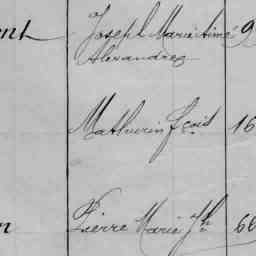 ent Joseph Marie time 9
Alexandre
Mathurin f.cois 16
n Pierre Marie Jh 66